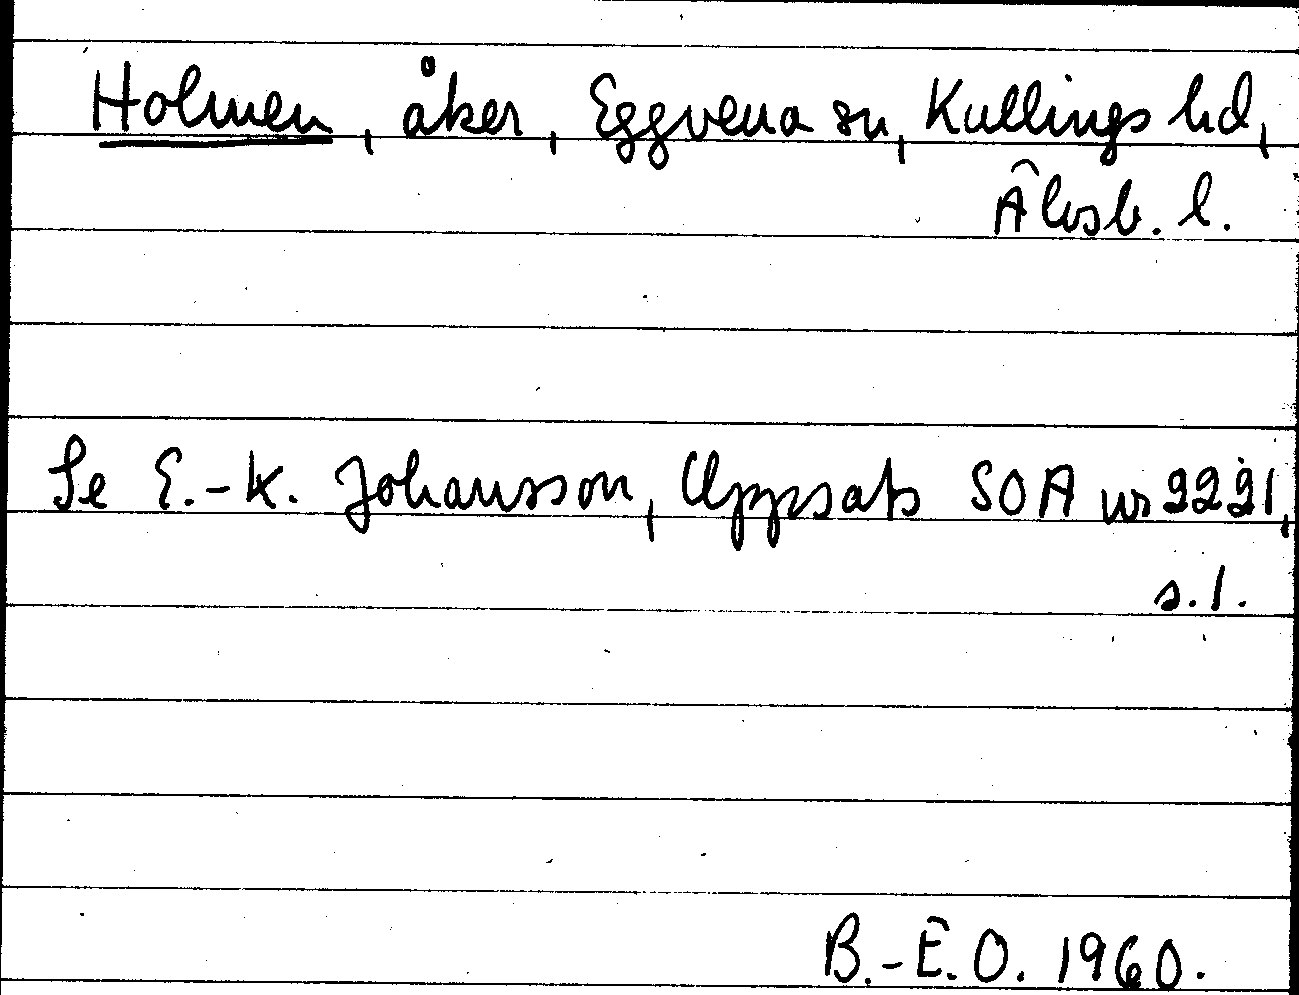 Holmen, åker, Eggvena sn, Kullings hd,
Älvsb. l.
Se E.-K. Johansson, Uppsats SOA nr 2221,
s. 1.
B.-E.O. 1960.